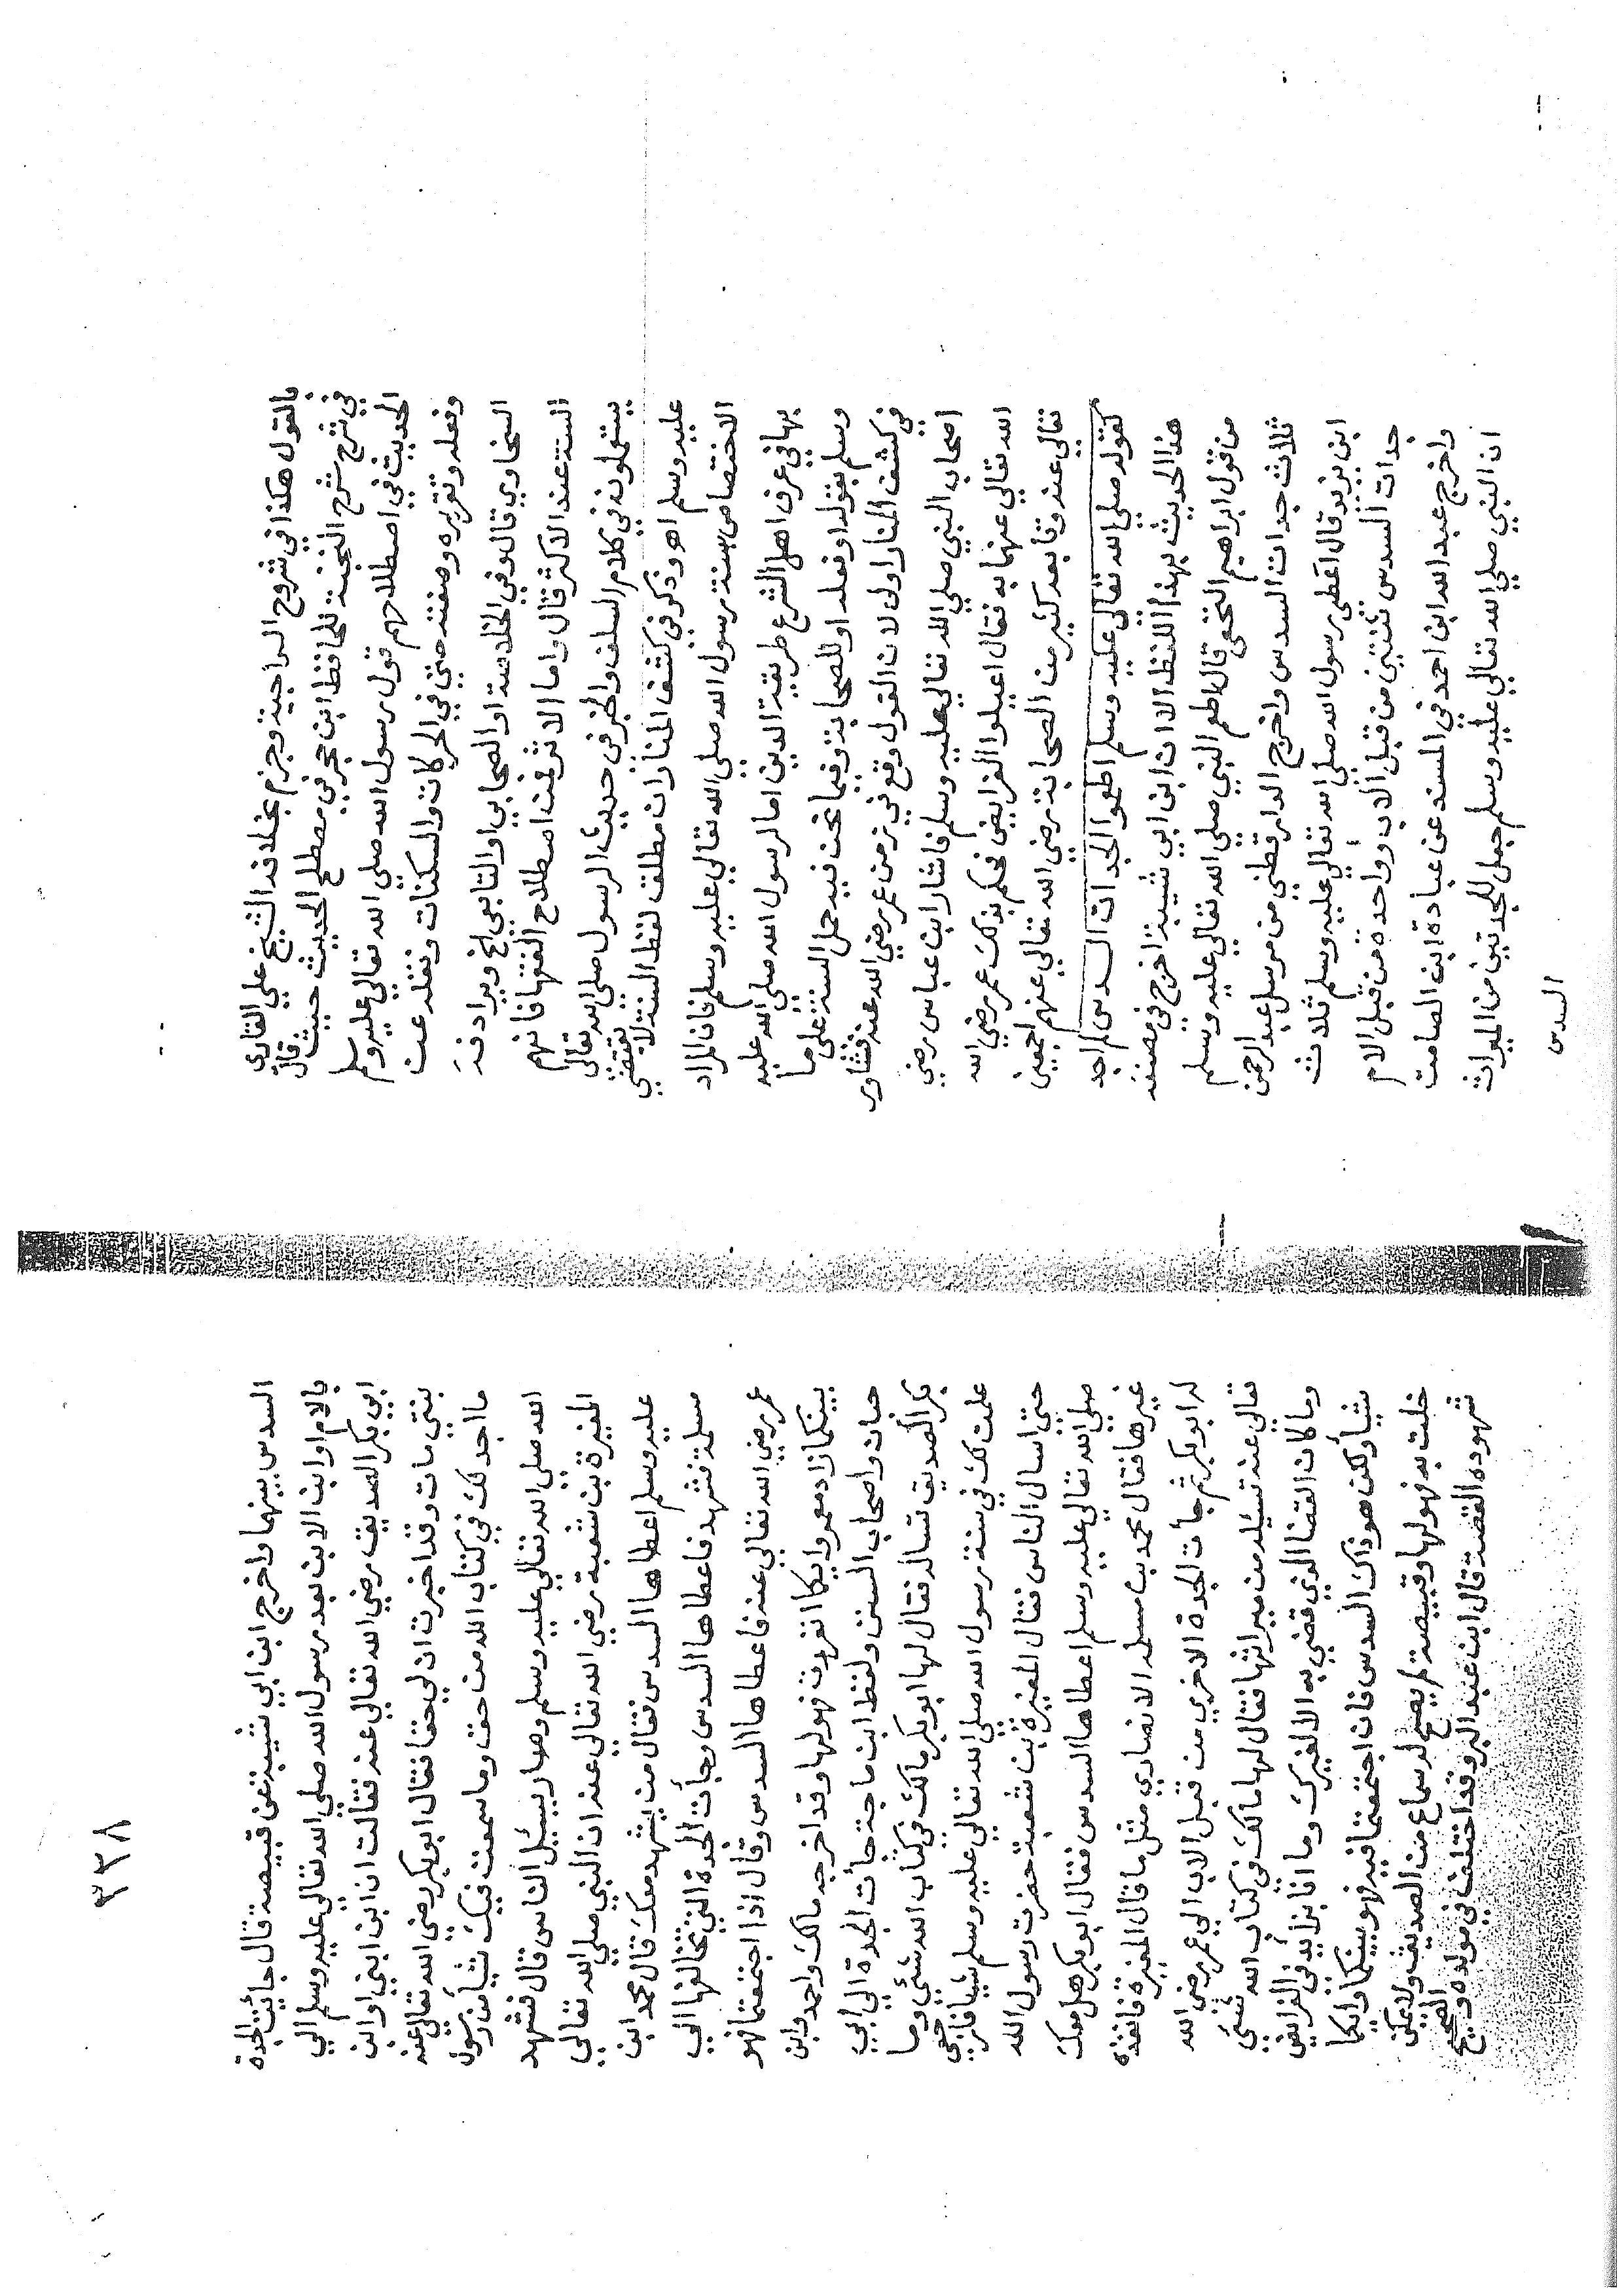 بالقول هكذا في شروح السراجية وجزم بخلافه الشيخ علي القاري
في شرح شرح النخبة للحافظ ابن حجر في مصطلح الحديث حيث قال
الحديث في اصطلاحهم قول رسول الله صلي الله تعالي عليه وسلم
وفعله وتقريره وصفته حتي في الحركات والسكنات ونقله عن
السخاوي قال وفي الخلاصة او الصحابي او التابعي الخ ويرادفه
السنة عند الاكثر قال واما الاثر فمن اصطلاح الفقها فانهم
يستعملونه في كلام السلف والخبر في حديث الرسول صلي الله تعالي
عليه وسلم اهو ذكر في كشف المنار ان مطلق لفظ السنة لا يقتضي
الاختصاص بسنة رسول الله صلي الله تعالي عليه وسلم فان المراد
بها في عرف اهل الشرع طريقة الدين اما لرسول الله صلي الله عليه
وسلم بقوله او فعله او للصحابة وفيما نحن فيه حمل السنة علي ما
في كشف المنار اولي لان القول وقع في زمن عمر رضي الله عنه فتشاور
اصحاب النبي صلي الله تعالي عليه وسلم فاشار ابن عباس رضي
الله تعالي عنهما به فقال اعيلوا الفرايض فحكم بذلك عمر رضي الله
تعالي عنه وتابعه كثير من الصحابة رضي الله تعالي عنهم اجمعين
كقوله صلي الله تعالي عليه وسلم اطعموا الجدات السدس لم اجد
هذا الحديث بهذا اللفظ الا ان ابن ابي شيبة اخرج في مصنفه
من قول ابراهيم النخعي قال اطعم النبي صلي الله تعالي عليه وسلم
ثلاث جدات السدس واخرج الدارقطني من مرسل عبد الرحمن
ابن يزيد قال اعطي رسول الله صلي الله تعالي عليه وسلم ثلاث
جدات السدس ثنتين من قبل الاب وواحدة من قبل الام
واخرج عبد الله ابن احمد في المسند عن عبادة ابن الصامت
ان النبي صلي الله تعالي عليه وسلم جعل للجدتين من الميراث
السدس
٣٢٨
السدس بينهما واخرج ابن ابي شيبة عن قبيصة قال جائت الجدة
بالام او ابن الابن بعد رسول الله صلي الله تعالي عليه وسلم الي
ابي بكر الصديق رضي الله تعالي عنه فقالت ان ابن ابني او ابن
بنتي مات وقد اخبرت ان لي حقا فقال ابو بكر رضي الله تعالي عنه
ما اجد لك في كتاب الله من حق وما سمعت فيك شيأ من رسول
الله صلي الله تعالي عليه وسلم وصار يسئيل الناس قال فشهد
المغيرة بن شعبة رضي الله تعالي عنه ان النبي صلي الله تعالي
عليه وسلم اعطاها السدس فقال من يشهد معك قال محمد ابن
مسلمة فشهد فاعطاها السدس وجأت الجدة التي تخالفها الي
عمر رضي الله تعالي عنه فاعطاها السدس وقال اذا اجتمعتما فهو
بينكما زاد معمر وايكما انفردت فهو لها وقد اخرجه مالك واحمد وابن
حبان واصحاب السنن ولفظ ابن ماجة جأت الجدة الي ابي
بكر الصديق تساله فقال لها ابو بكر مالك في كتاب الله شئي وما
علمت لك في سنة رسول الله صلي الله تعالي عليه وسلم شيأ فارجعي
حتي اسال الناس فقال المغيرة بن شعبة حضرت رسول الله
صلي الله تعالي عليه وسلم اعطاها السدس فقال ابو بكر هل معك
غيرها فقال محمد بن مسلمه الانصاري مثل ما قال المغيرة فانفذه
لها ابو بكر ثم جأت الجدة الاخري من قبل الاب الي عمر رضي الله
تعالي عنه تسئله من ميراثها فقال لها مالك في كتاب الله شئي
وما كان القضا الذي قضي به الا لغيرك وما انا بزائد في الفرايض
شيأ ولكن هو ذاك السدس فان اجتمعتما فيه فهو بينكما وايكما
خلت به فهو لها وقبيصة لم يصح له سماع من الصديق ولا يمكن
شهوده القصة قال ابن عبد البر وقد اختلف في مولده والصحيح